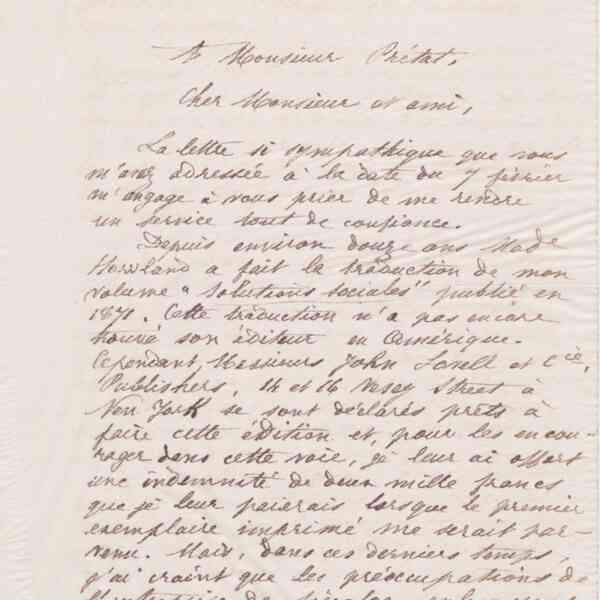 A Monsieur Prétat,
Cher Monsieur et ami,
La lettre si sympathique que vous
m'avez adressée à la date du 7 février
m'engage à vous prier de me rendre
un service tout de confiance.
Depuis environ douze ans Made
Howland a fait la traduction de mon
volume "Solutions sociales" publié en
1871. Cette traduction n'a pas encore
trouvé son éditeur en Amérique.
Cependant, Messieurs John Lovell et Cie,
Publishers, 14 et 16 Vesey Street à
New York se sont déclarés prêts à
faire cette édition et, pour les encou-
rager dans cette voie, je leur ai offert
une indemnité de deux mille francs
que je leur paierais lorsque le premier
exemplaire imprimé me serait par-
venu. Mais, dans ces derniers temps,
j'ai craint que les préoccupations de
l'entreprise de